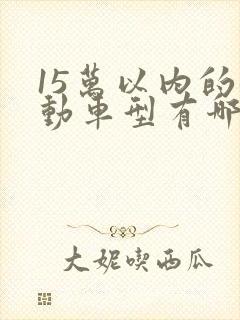 15萬以內的
動車型有哪
大妮喫西瓜